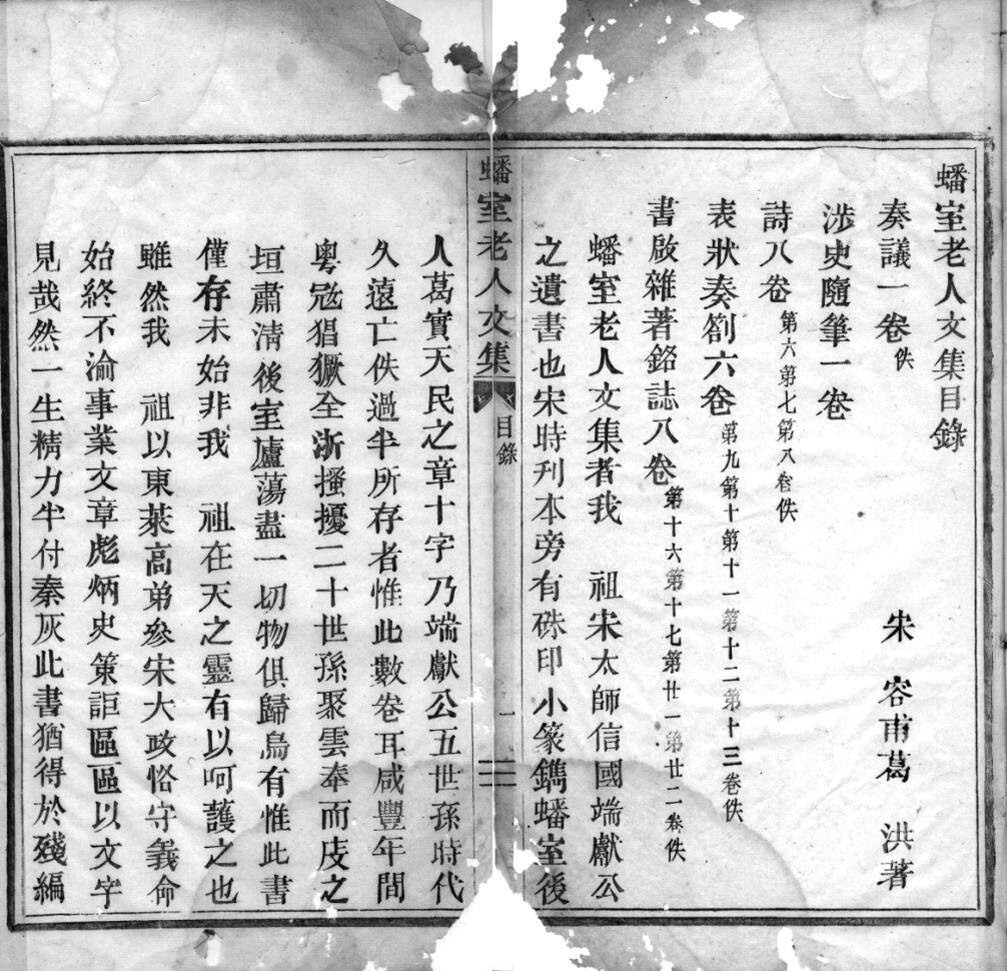 蟠室老人文集目錄
宋　容甫葛　洪著
奏議一卷佚
涉史隨筆一卷
詩八卷第六第七第八卷佚
表狀奏劄六卷第九第十第十一第十二第十三卷佚
書啟雜著銘誌八卷第十六第十七第廿一第廿二卷佚
蟠室老人文集者我　祖宋太師信國端獻公
之遺書也宋時刋本旁有硃印小篆鐫蟠室後
蟠室老人文集　目錄　一
人葛實天民之章十字乃端獻公五世孫時代
久遠亡佚過半所存者惟此數卷耳咸豐年間
粵冦猖獗全浙搔擾二十世孫聚雲奉而庋之
垣肅淸後室廬蕩盡一切物俱歸烏有惟此書
僅存未始非我　祖在天之靈有以呵護之也
雖然我　祖以東萊高弟參宋大政恪守義命
始終不渝事業文章彪炳史策詎區區以文字
見哉然一生精力半付秦灰此書猶得於殘編